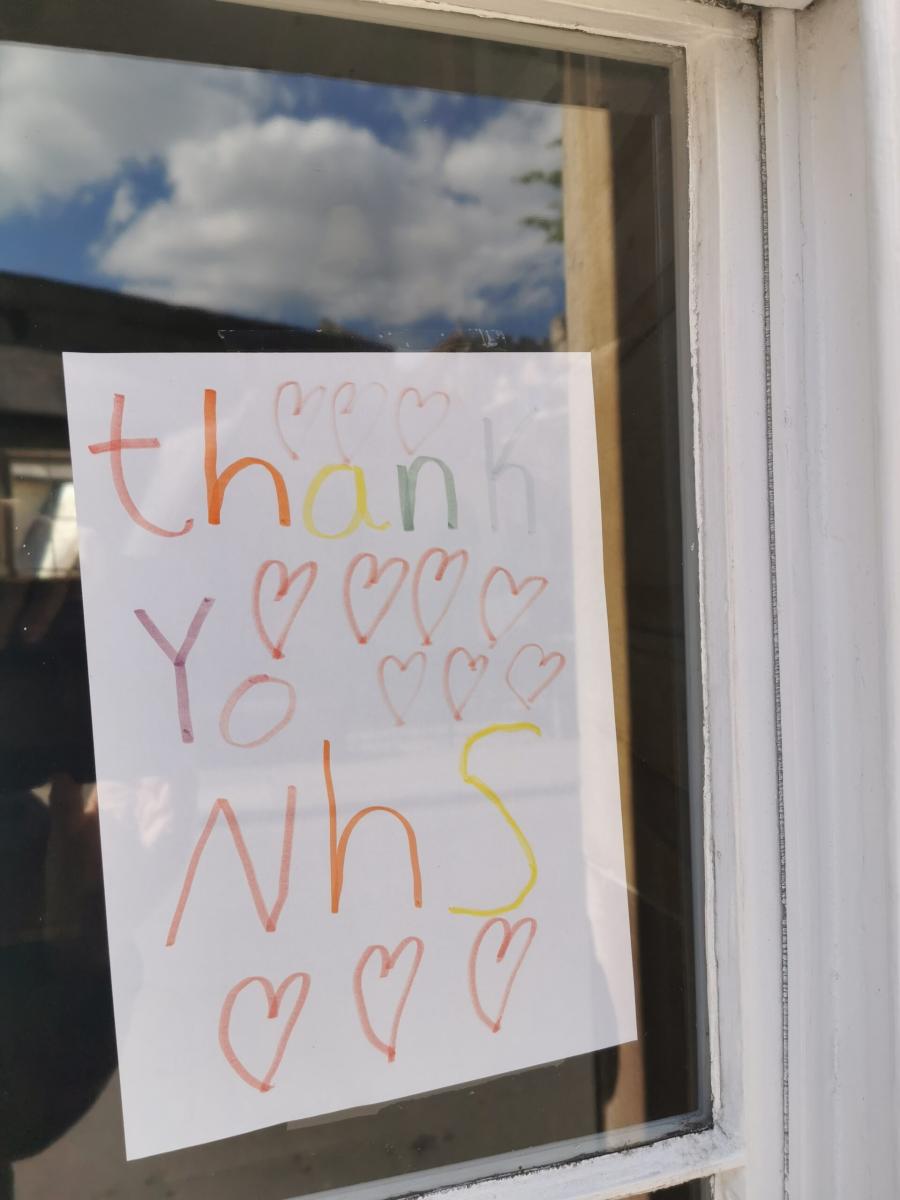 thank
Yo
NhS